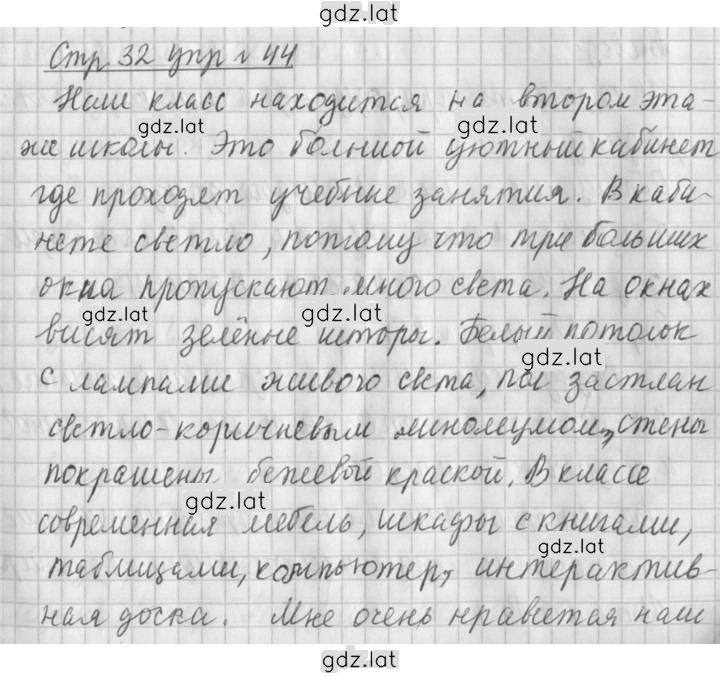 gdz.lat
Стр 32 упр № 44
Наш класс находится на втором эта-
gdz.lat
же школы. Это большой уютный кабинет
gdz.lat
где проходят учебные занятия. В каби-
нете светло, потому что три больших
окна пропускают много света. На окнах
gdz.lat
висят зелёные шторы. Белый потолок
gdz.lat
с лампами живого света, пол застлан
светло-коричневым линолеумом, стены
покрашены бежевой краской. В классе
gdz.lat
современная мебель, шкафы с книгами,
gdz.lat
таблицами, компьютер, интерактив-
ная доска. Мне очень нравится наш
gdz.lat